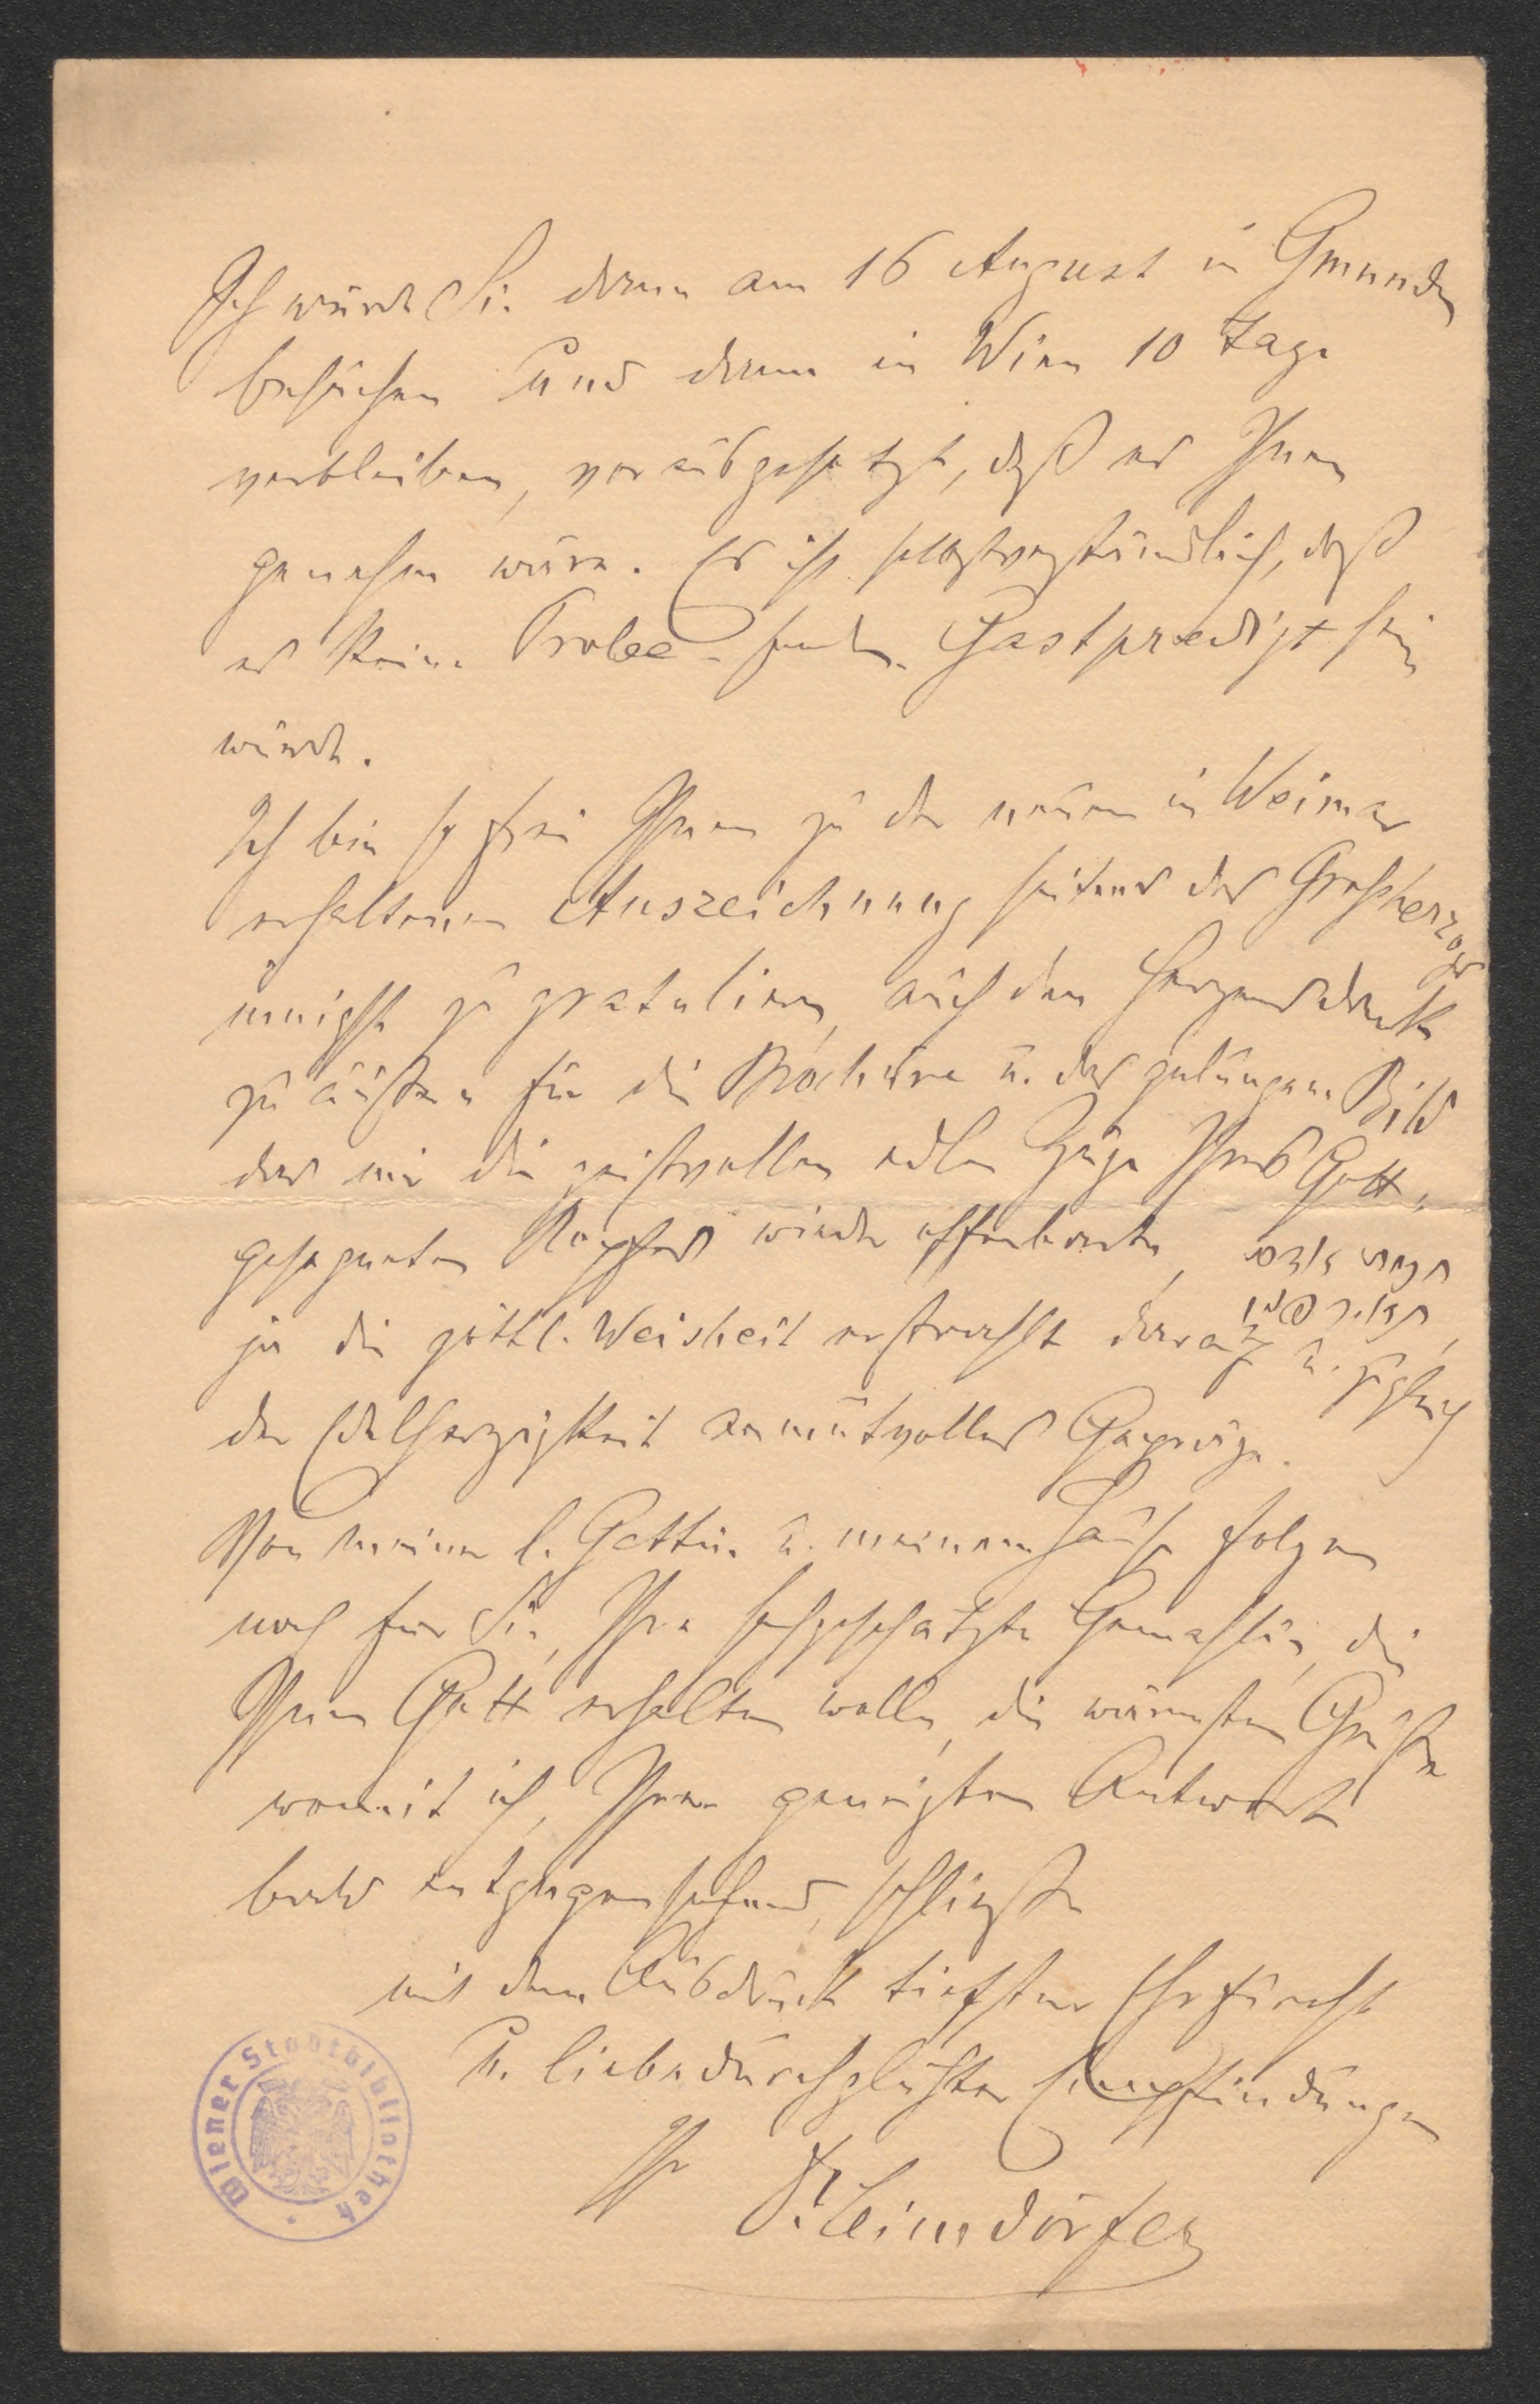 Ich würde Sie dann am 16 August in Gmunden
besuchen und dann in Wien 10 Tage
verbleiben, vorausgesetzt, daß es Ihnen
genehm wäre. Es ist selbstverständlich, daß
es keine Probe- sondern Gastpredigt sein
würde.
Ich bin so frei Ihnen zu der neuen in Weimar
erhaltenen Auszeichnung seitens des Großherzogs
innigst zu gratulieren, auch den Herzensdank
zu äußern für die Brochüre u. das gelungene Bild
das mir die geistvollen edlen Züge Ihres Gott-
gesegneten Kopfes wieder offenbarte,
ja die göttl. Weisheit erstrahlt daraus u. zugleich
der Edelherzigkeit anmutvolles Gepräge.
Von meiner l. Gattin u. meinem Hause folgen
noch für Sie, Ihre hochgeschätzte Gemahlin, die
Ihnen Gott erhalten wolle, die wärmsten Grüße
womit ich, Ihrer geneigten Antwort
bald entgegensehend, schließe
mit dem Ausdruck tiefster Ehrfurcht
u. liebedurchglühter Empfindungen
Ihr Dr. Leimdörfer
Wiener Stadtbibliothek